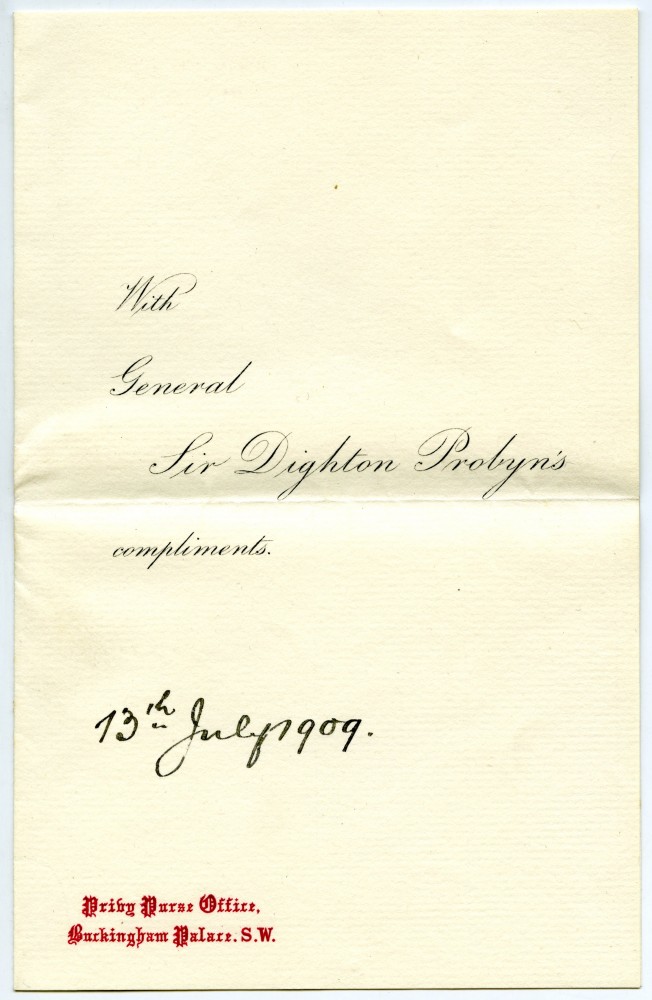 With
General
Sir Dighton Probyn's
compliments.
13th July 1909.
Privy Purse Office,
Buckingham Palace. S.W.